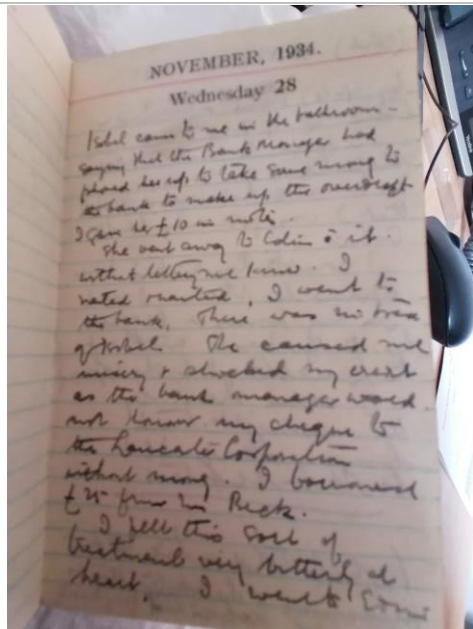 NOVEMBER, 1934.
Wednesday 28
Isbel came to me in the bathroom -
saying that the Bank Manager had
phoned her up to take some money to
the bank to make up the overdraft
I gave her £10 in notes.
She went away to Colin & it.
without letting me know. I
waited & waited, I went to
the bank. There was no trace
of Isbel. She caused me
misery & shocked my credit
as the bank manager would
not honour my cheque to
the Lancaster Corporation
without money. I borrowed
£25 from Peck.
I felt this sort of
treatment very bitterly at
heart. I went to